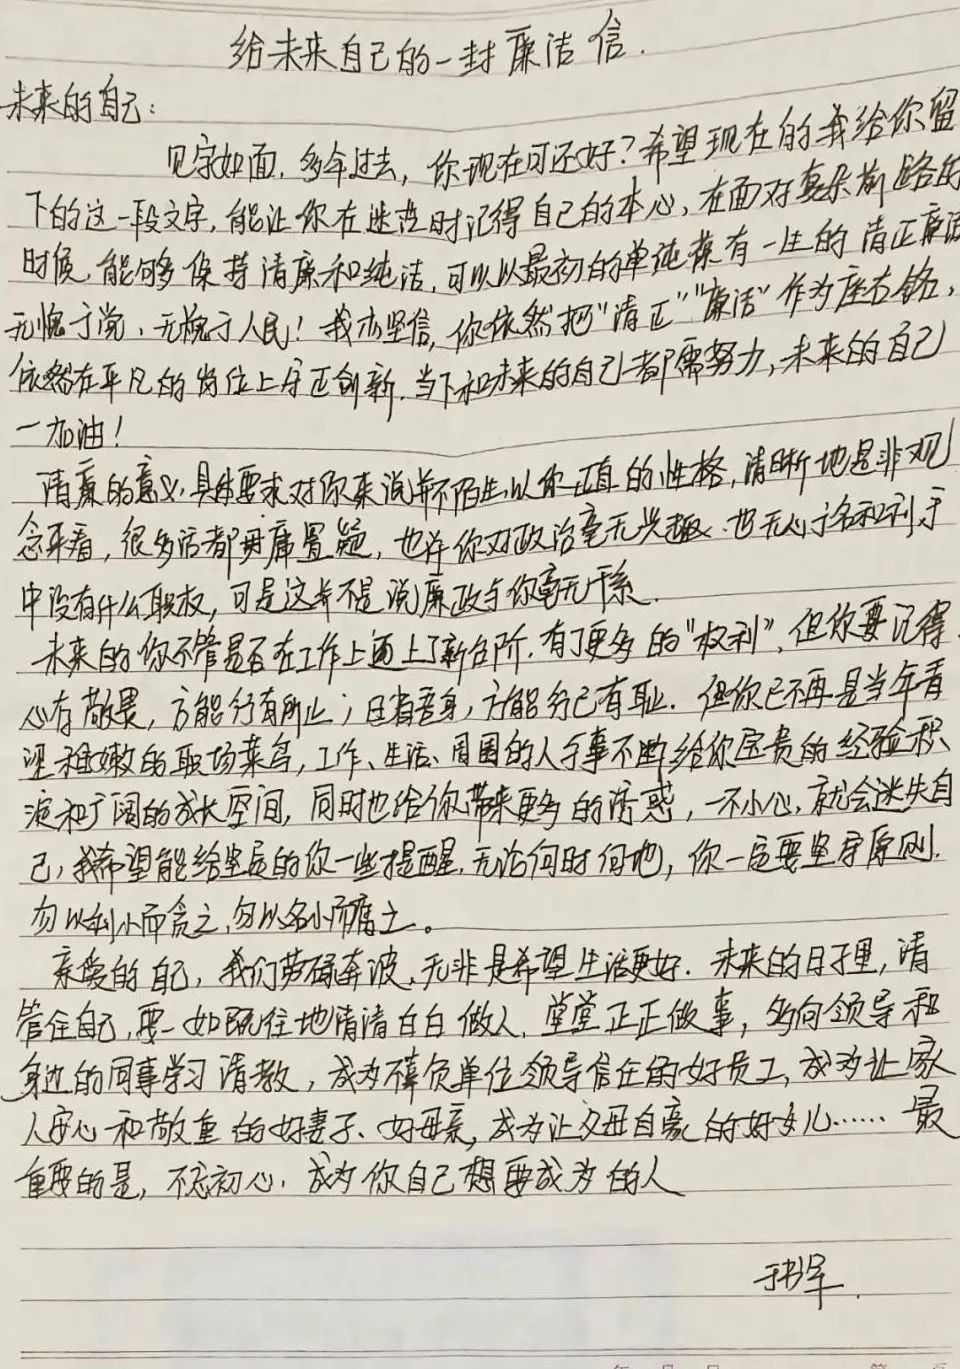 给未来自己的一封廉洁信.
未来的自己:
见字如面,多年过去,你现在可还好?希望现在的我给你留
下的这一段文字,能让你在迷茫时记得自己的本心,在面对复杂前路的
时候,能够保持清廉和纯洁,可以以最初的单纯葆有一生的清正廉洁
无愧于党、无愧于人民!我亦坚信,你依然把“清正”“廉洁”作为座右铭,
依然在平凡的岗位上守正创新.当下和未来的自己都需努力,未来的自己
一加油!
清廉的意义,具体要求对你来说并不陌生,以你正直的性格,清晰地是非观
念来看,很多话都毋庸置疑,也许你对政治毫无兴趣.也无心于名和利手
中没有什么职权,可是这并不是说廉政与你毫无干系.
未来的你不管是否在工作上迈上了新台阶.有了更多的“权利”,但你要记得
心有敬畏,方能行有所止;日省吾身,方能行己有耻.但你已不再是当年青
涩稚嫩的职场菜鸟,工作、生活、周围的人于事不断给你宝贵的经验积
淀和广阔的成长空间,同时也给你带来更多的诱惑,一不小心,就会迷失自
己,我希望能给坐的你一些提醒.无论何时何地,你一定要坚守原则.
勿以利小而贪之,勿以名小而腐之。
亲爱的自己,我们劳碌奔波,无非是希望生活更好.未来的日子里,请
管住自己,要一如既往地清清白白做人,堂堂正正做事,多向领导和
身边的同事学习请教,成为不负单位领导信任的好员工,成为让家
人安心和敬重的好妻子、好母亲,成为让父母自豪的好女儿……最
重要的是,不忘初心,成为你自己想要成为的人